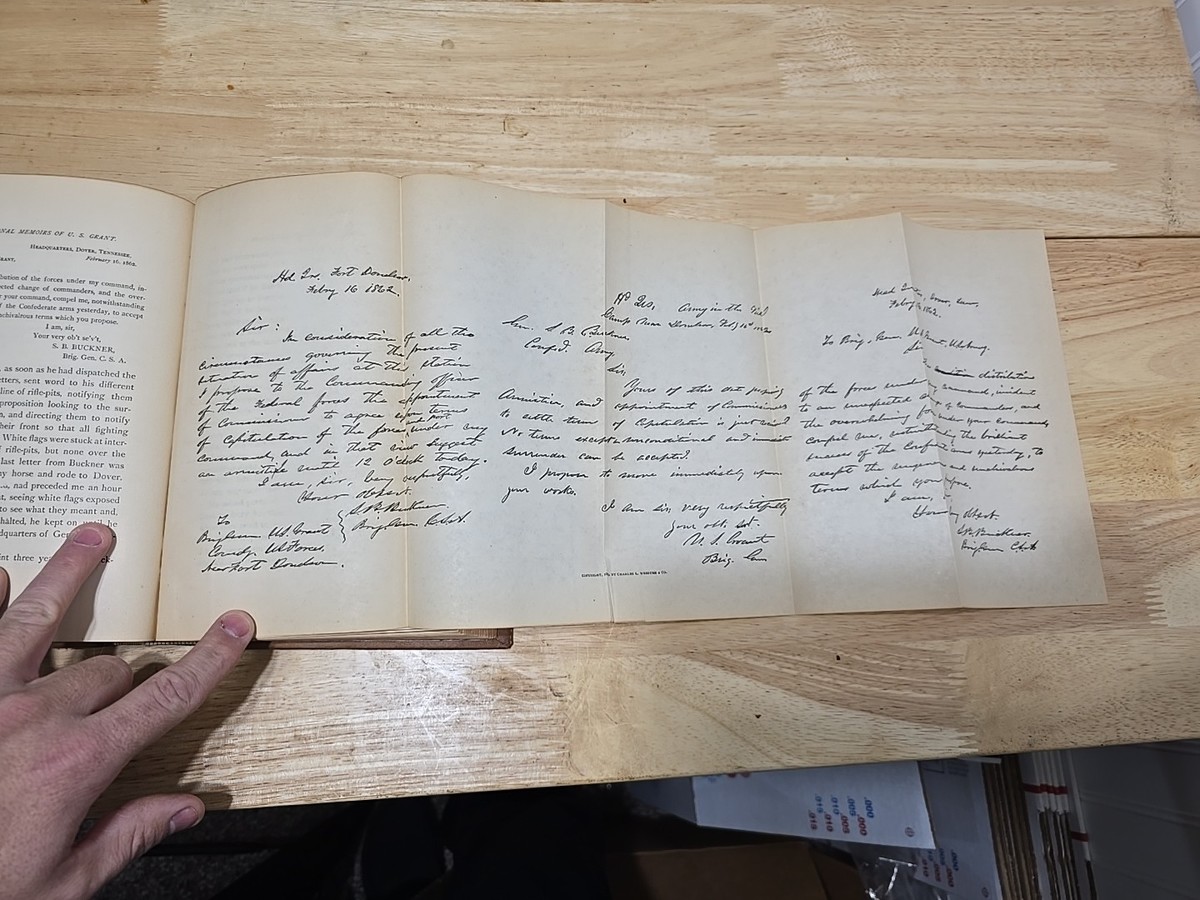 NAL MEMOIRS OF U. S. GRANT.
HEADQUARTERS, DOVER, TENNESSEE,
February 16, 1862.
bution of the forces under my command, in-
ected change of commanders, and the over-
your command, compel me, notwithstanding
f the Confederate arms yesterday, to accept
chivalrous terms which you propose.
I am, sir,
Your very ob't se'v't,
S. B. BUCKNER,
Brig. Gen. C. S. A.
, as soon as he had dispatched the
etters, sent word to his different
line of rifle-pits, notifying them
proposition looking to the sur-
n, and directing them to notify
heir front so that all fighting
White flags were stuck at inter-
f rifle-pits, but none over the
last letter from Buckner was
y horse and rode to Dover.
had preceded me an hour
t, seeing white flags exposed
to see what they meant and,
halted, he kept on until he
dquarters of Gen
nt three ye
Hd Qrs. Fort Donelson,
Febry 16 1862.
Sir: In consideration of all the
circumstances governing the present
situation of affairs at this station
I propose to the Commanding officer
of the Federal forces the appointment
of Commissioners to agree upon terms
of capitulation of the forces and post under my
command, and in that view suggest
an armistice until 12 O'clock today.
I am, sir, very respectfully,
Your obt
S. B. Buckner
Brig Gen C.S.A.
To
Brig Gen U.S. Grant
Comdg. US Forces,
Near Fort Donelson.
Hd Qrs, Army in the Field
Camp Near Donelson, Feby 16th 1862
Gen. S. B. Buckner,
Confed. Army,
Sir,
Yours of this date proposing
Armistice, and appointment of Commissioners
to settle terms of Capitulation is just received
No terms except unconditional and immediate
surrender can be accepted.
I propose to move immediately upon
your works.
I am Sir, very respectfully
your obt. svt.
U. S. Grant
Brig. Gen
COPYRIGHT, BY CHARLES L. WEBSTER & CO.
Head Qrs, Dover, Tenn,
Feby 16, 1862.
To Brig. Gen. U. S. Grant, U.S. Army.
Sir
distribution
of the forces under my command, incident
to an unexpected of commanders, and
the overwhelming force under your command,
compel me, notwithstanding the brilliant
success of the Confederate arms yesterday, to
accept the ungenerous and unchivalrous
terms which you propose.
I am,
S. B. Buckner.
Brig Gen C.S.A